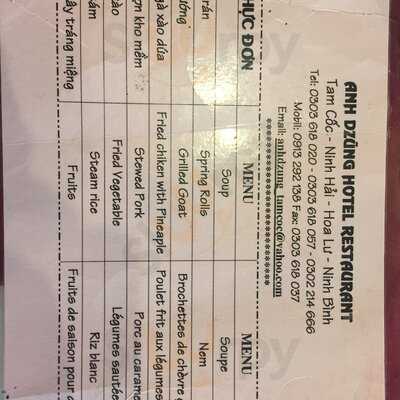 ANH DZŨNG HOTEL RESTAURANT
Tam Cốc - Ninh Hải - Hoa Lư - Ninh Bình
Tel: 0303 618 020 - 0303 618 057 - 0302 214 666
Mobil: 0913 292 138 Fax: 0303 618 037
Email: anhdzung_tamcoc@yahoo.com
ỰC ĐƠN MENU MENU
Soup Soupe
rán Spring Rolls Nem
ướng Grilled Goat Brochettes de chèvre
gà xào dứa Fried chiken with Pineaple Poulet frit aux légumes
ợn kho mềm Stewed Pork Porc au carame
xào Fried Vegetable Légumes sautée
Steam rice Riz blanc
ây tráng miệng Fruits Fruits de saison pour